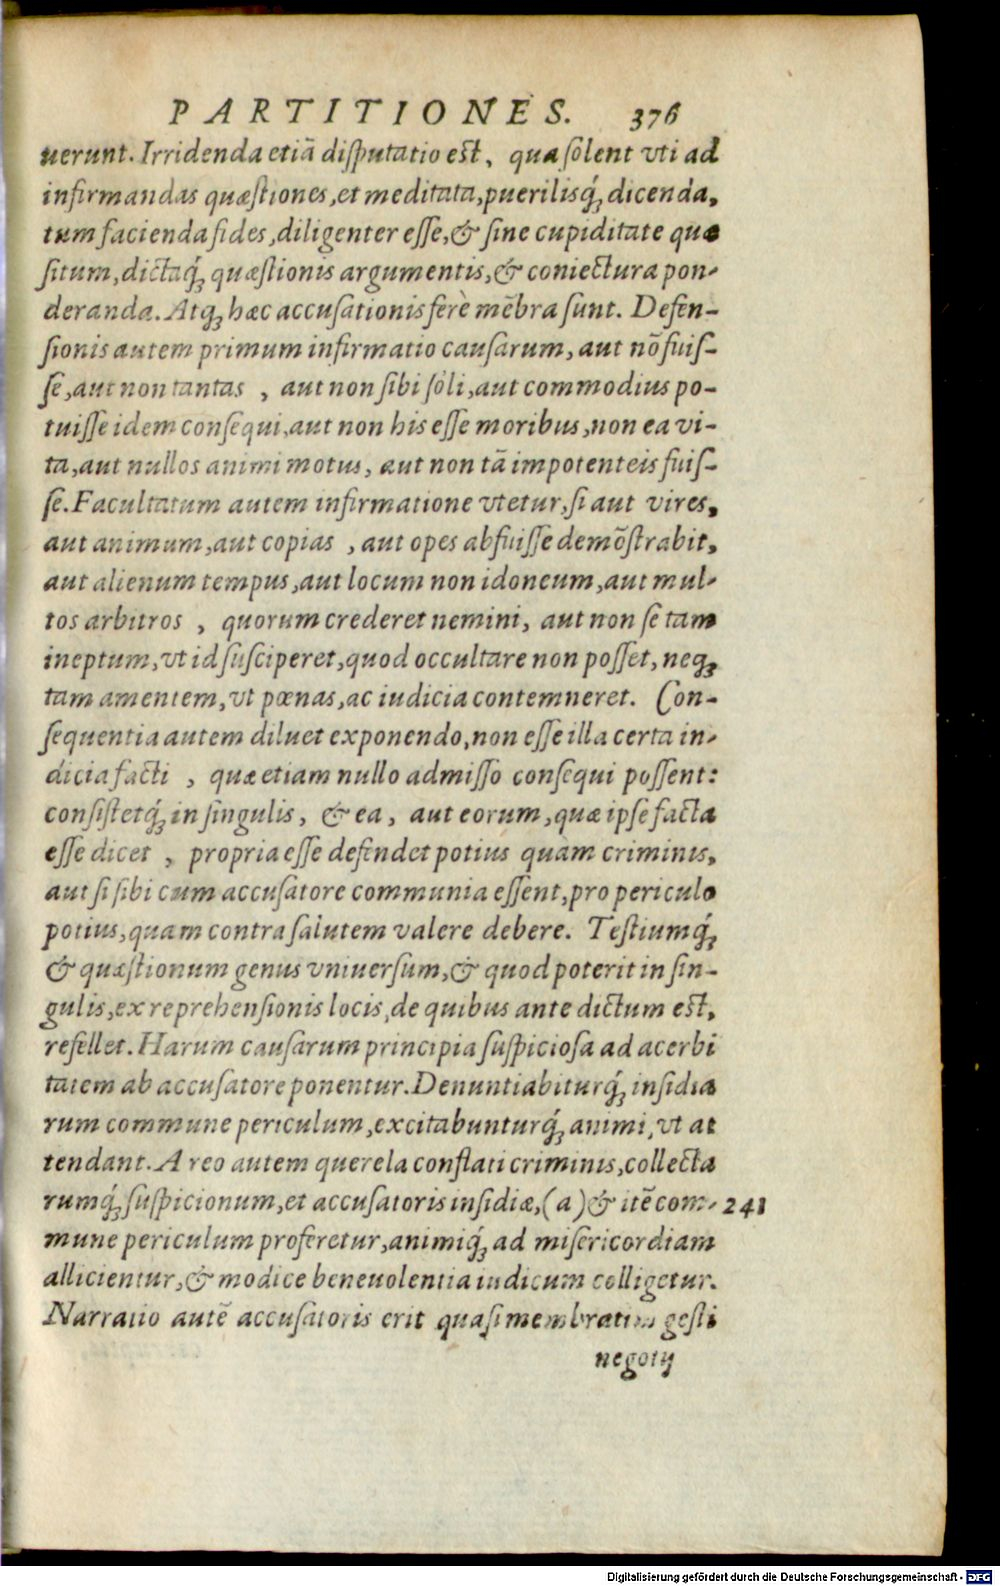 PARTITIONES. 376
uerunt. Irridenda etiã disputatio est, qua solent vti ad
infirmandas quæstiones, et meditata, puerilisq́ꝫ dicenda,
tum facienda fides, diligenter esse, & sine cupiditate quæ
situm, dictaq́ꝫ quæstionis argumentis, & coniectura pon-
deranda. Atqꝫ hæc accusationis ferè mẽbra sunt. Defen-
sionis autem primum infirmatio causarum, aut nõ fuis-
se, aut non tantas, aut non sibi soli, aut commodius po-
tuisse idem consequi, aut non his esse moribus, non ea vi-
ta, aut nullos animi motus, aut non tã impotenteis fuis-
se. Facultatum autem infirmatione vtetur, si aut vires,
aut animum, aut copias, aut opes abfuisse demõstrabit,
aut alienum tempus, aut locum non idoneum, aut mul-
tos arbitros, quorum crederet nemini, aut non se tam
ineptum, vt id susciperet, quod occultare non posset, neqꝫ
tam amentem, vt pœnas, ac iudicia contemneret. Con-
sequentia autem diluet exponendo, non esse illa certa in-
dicia facti, quæ etiam nullo admisso consequi possent:
consistetq́ꝫ in singulis, & ea, aut eorum, quæ ipse facta
esse dicet, propria esse defendet potius quàm criminis,
aut si sibi cum accusatore communia essent, pro periculo
potius, quam contra salutem valere debere. Testiumq́ꝫ
& quæstionum genus vniuersum, & quod poterit in sin-
gulis, ex reprehensionis locis, de quibus ante dictum est,
refellet. Harum causarum principia suspiciosa ad acerbi
tatem ab accusatore ponentur. Denuntiabiturq́ꝫ insidia
rum commune periculum, excitabunturq́ꝫ animi, vt at
tendant. A reo autem querela conflati criminis, collecta
rumq́ꝫ suspicionum, et accusatoris insidiæ, (a) & itẽ com- 241
mune periculum proferetur, animiq́ꝫ ad misericordiam
allicientur, & modice beneuolentia iudicum colligetur.
Narratio autẽ accusatoris erit quasi membratim gesti
negotij
Digitalisierung gefördert durch die Deutsche Forschungsgemeinschaft - DFG